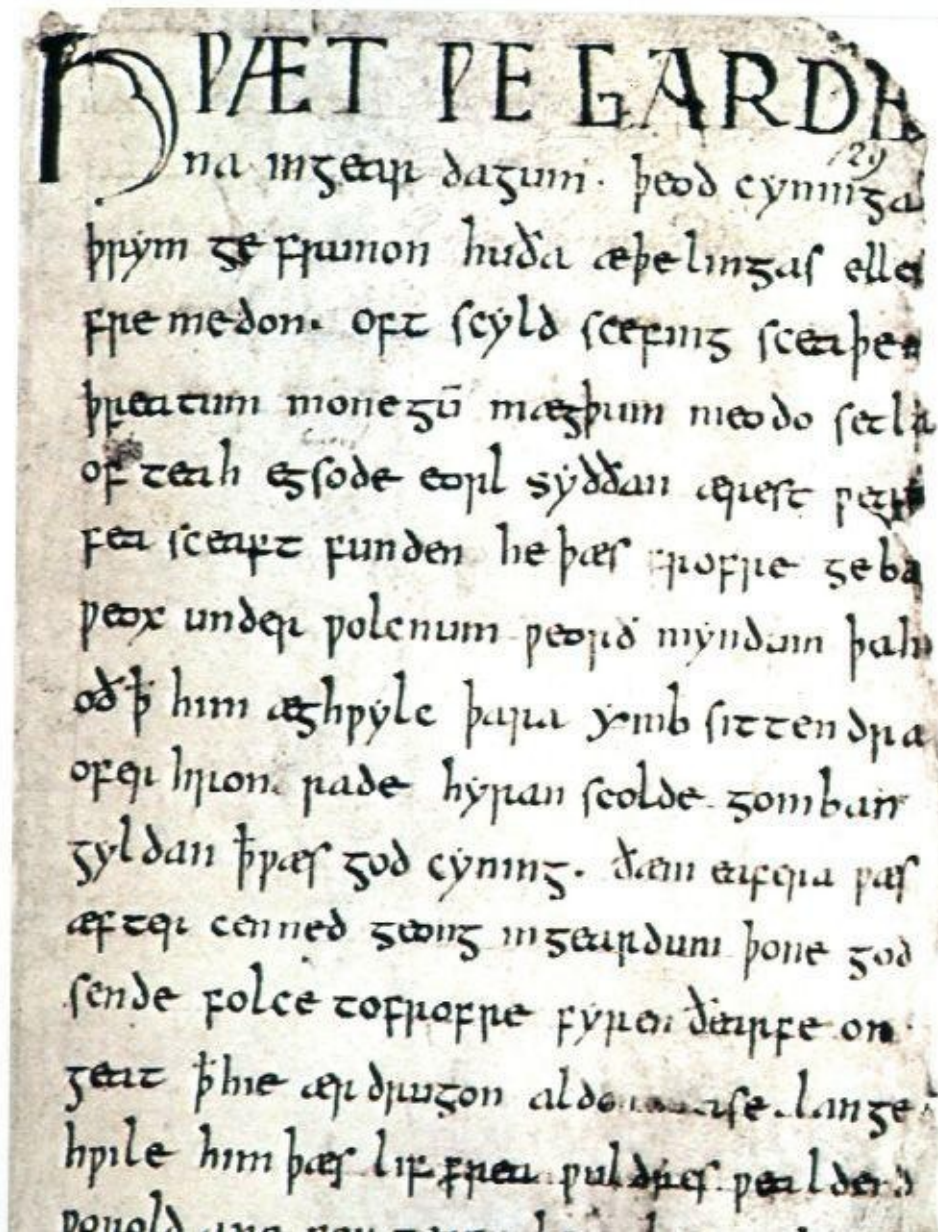 HǷÆT ǷE GARDE
129
na ingear dagum. þeod cyninga
þrym ge frunon huða æþelingas elle
fre medon. oft scyld scefing sceaþe
þreatum monegū mægþum meodo setla
of teah egsode eorl syððan ærest ƿear
fea sceaft funden he þæs frofre geba
ƿeox under ƿolcnum ƿeorð myndum þah
oð ꝥ him æghƿylc þara ymb sittendra
ofer hron rade hyran scolde gomban
gyldan ꝥƿæs god cyning. ðæm eafera ƿæs
æfter cenned geong ingeardum þone god
sende folce tofrofre fyren ðearfe on
geat ꝥhie ær drugon aldo ase. lange
hƿile him þæs lif frea ƿuldres ƿealdend